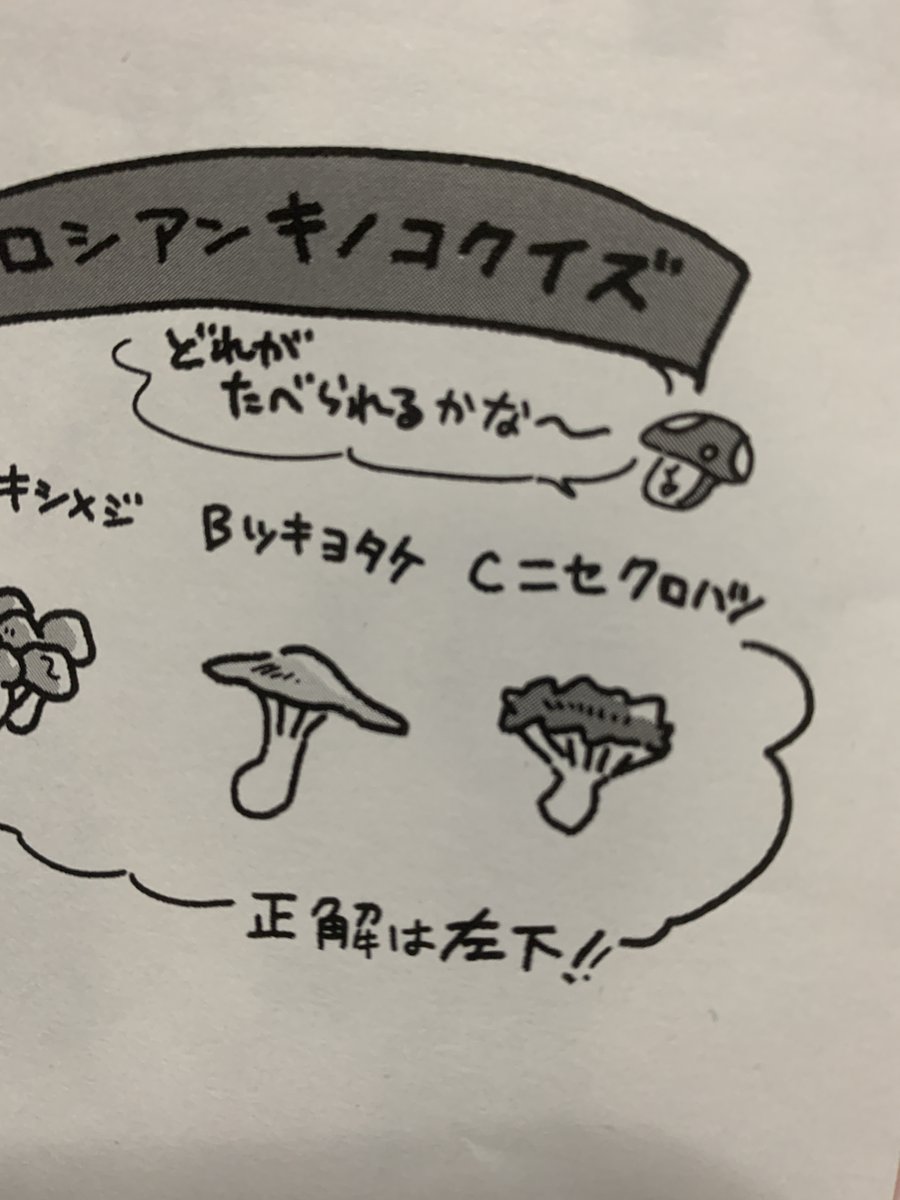 ロシアンキノコクイズ
どれが
たべられるかな〜
キシメジ
Bツキヨタケ
Cニセクロハツ
正解は左下!!